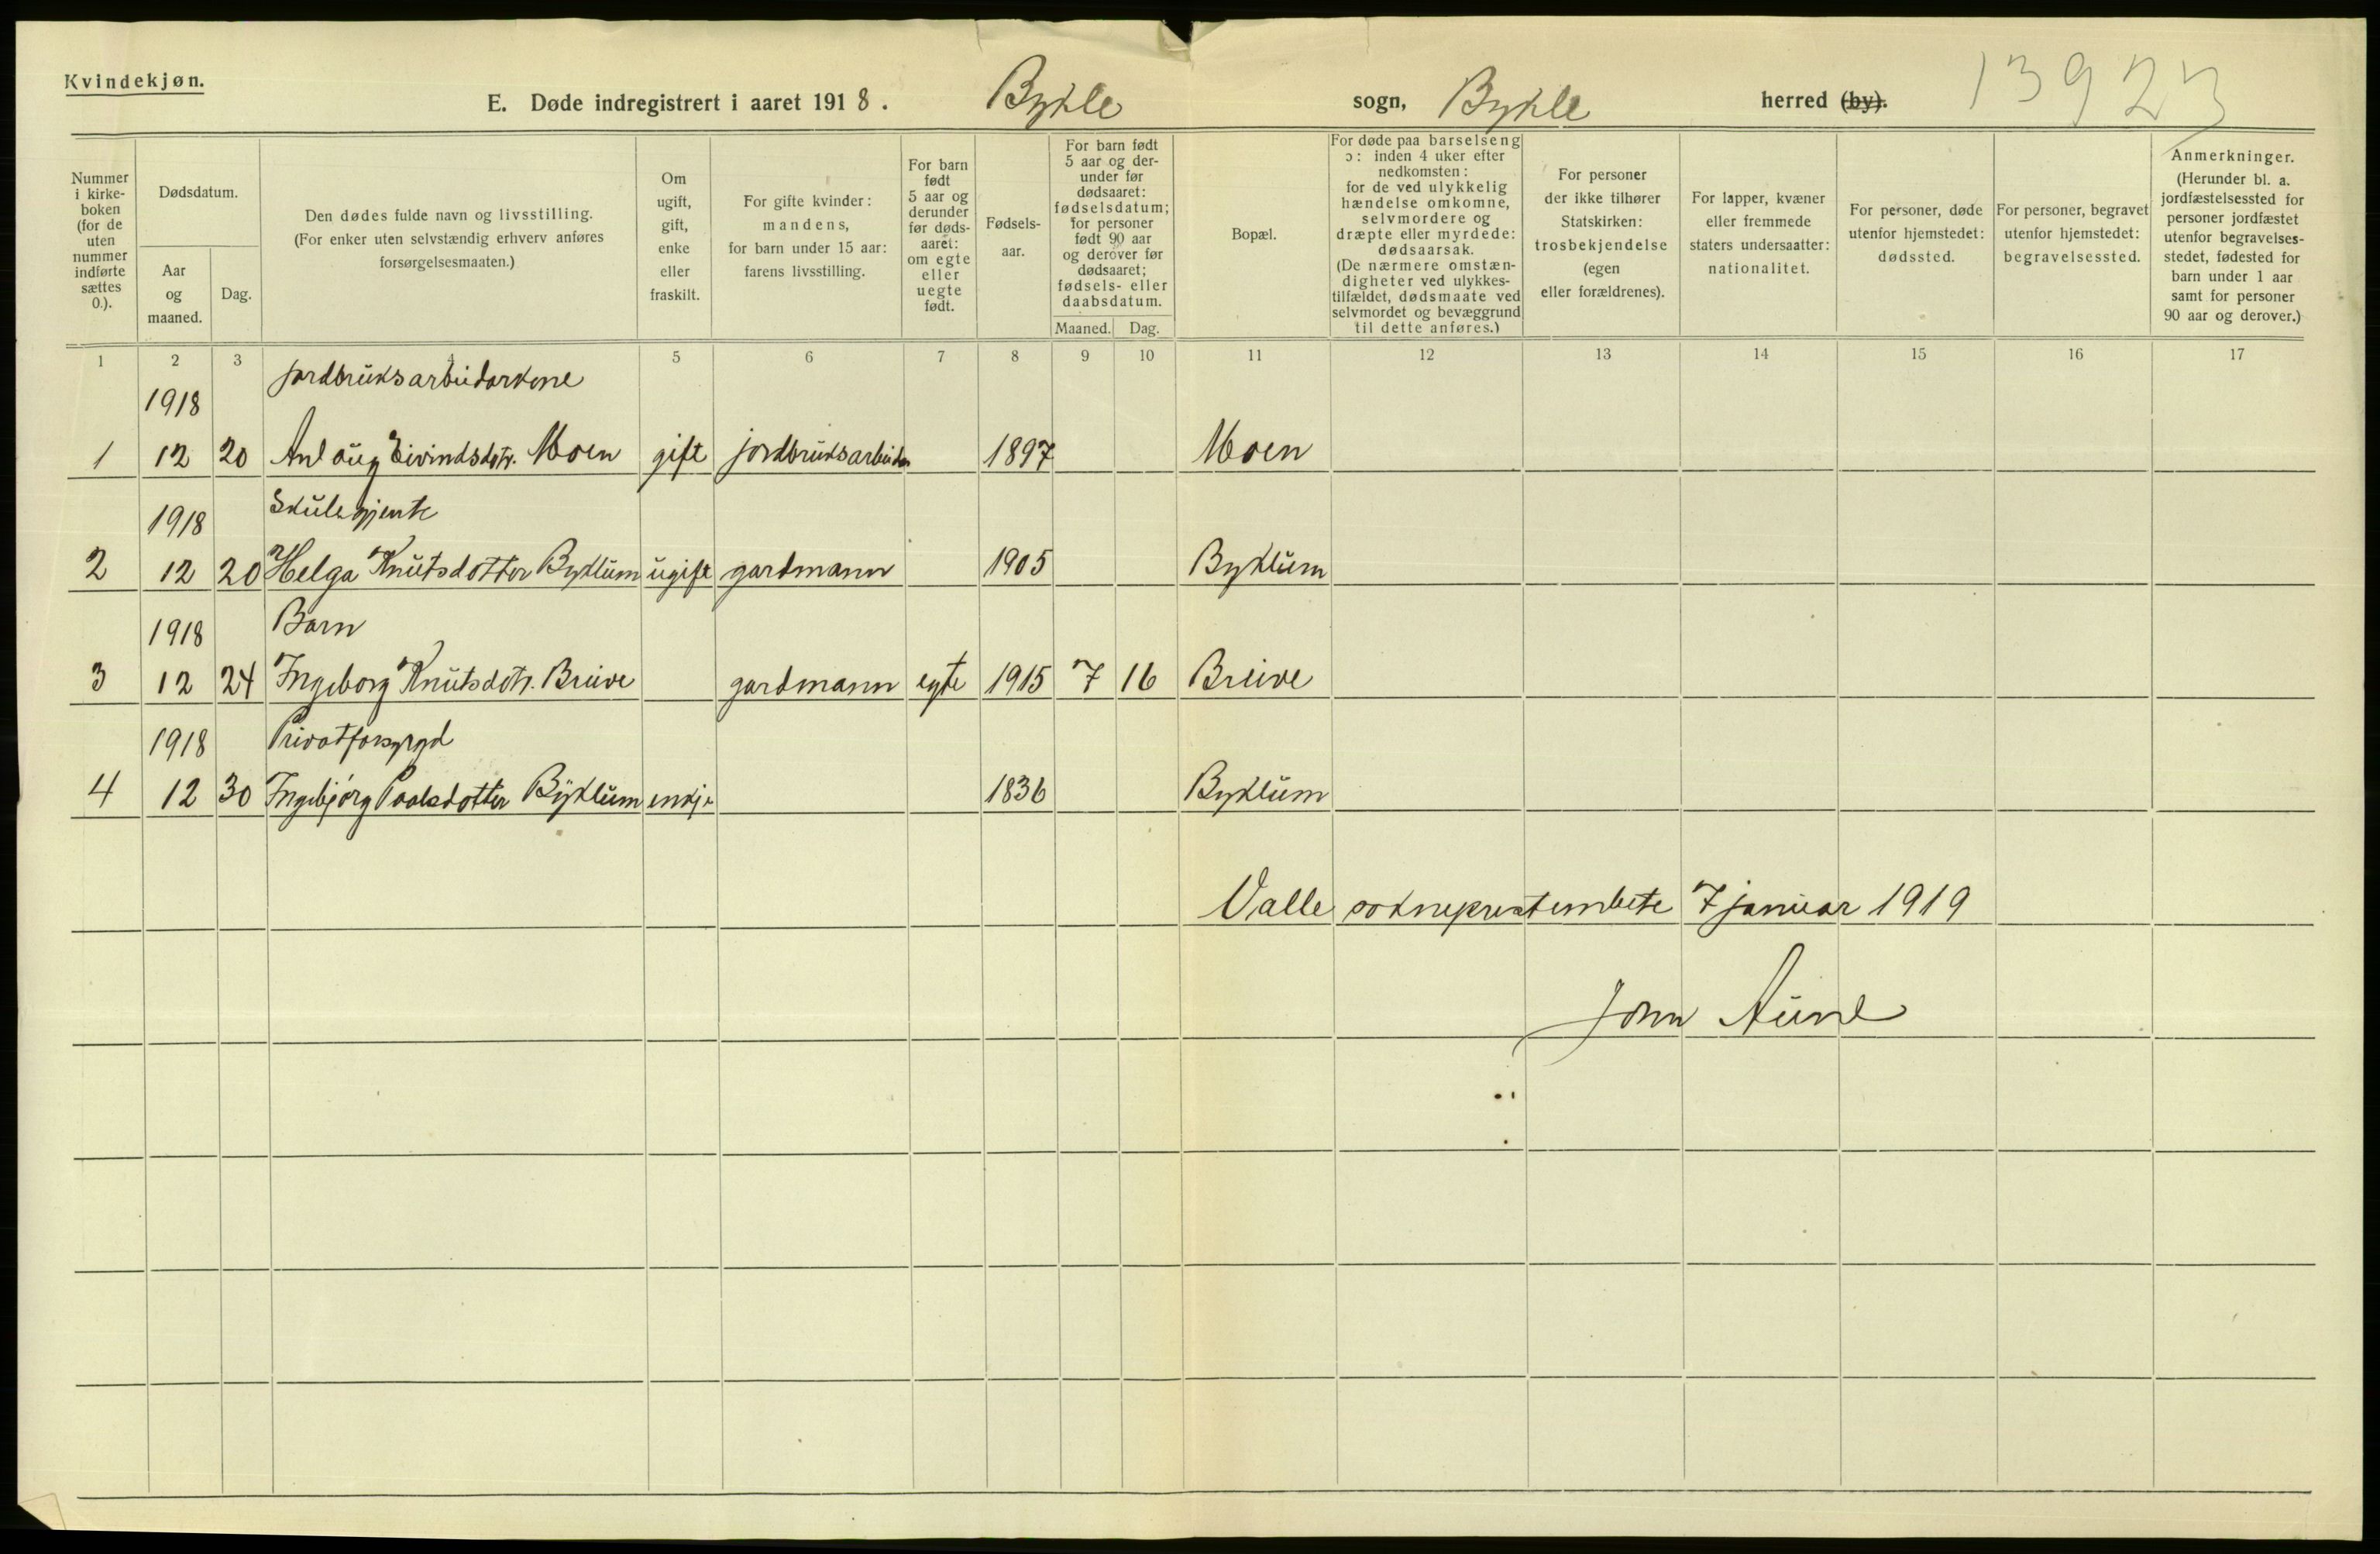 Kvindekjøn.
E. Døde indregistrert i aaret 1918. Bykle sogn, Bykle herred (by). 13923
Nummer
i kirke-
boken
(for de
uten
nummer
indførte
sættes
0.).
Dødsdatum.
Aar
og
maaned.
Dag.
Den dødes fulde navn og livsstilling.
(For enker uten selvstændig erhverv anføres
forsørgelsesmaaten.)
Om
ugift,
gift,
enke
eller
fraskilt.
For gifte kvinder:
mandens,
for barn under 15 aar:
farens livsstilling.
For barn
født
5 aar og
derunder
før døds-
aaret:
om egte
eller
uegte
født.
Fødsels-
aar.
For barn født
5 aar og der-
under før
dødsaaret:
fødselsdatum;
for personer
født 90 aar
og derover før
dødsaaret;
fødsels- eller
daabsdatum.
Maaned. Dag.
Bopæl.
For døde paa barselseng
ɔ: inden 4 uker efter
nedkomsten:
for de ved ulykkelig
hændelse omkomne,
selvmordere og
dræpte eller myrdede:
dødsaarsak.
(De nærmere omstæn-
digheter ved ulykkes-
tilfældet, dødsmaate ved
selvmordet og bevæggrund
til dette anføres.)
For personer
der ikke tilhører
Statskirken:
trosbekjendelse
(egen
eller forældrenes).
For lapper, kvæner
eller fremmede
staters undersaatter:
nationalitet.
For personer, døde
utenfor hjemstedet:
dødssted.
For personer, begravet
utenfor hjemstedet:
begravelsessted.
Anmerkninger.
(Herunder bl. a.
jordfæstelsessted for
personer jordfæstet
utenfor begravelses-
stedet, fødested for
barn under 1 aar
samt for personer
90 aar og derover.)
1 2 3 4 5 6 7 8 9 10 11 12 13 14 15 16 17
1918 jordbruksarbeidarkone
1 12 20 Anlaug Eivindsdotr. Moen gift jordbruksarbeidar 1897 Moen
1918 Skulegjente
2 12 20 Helga Knutsdotter Byklum ugift gardmann 1905 Byklum
1918 Barn
3 12 24 Ingeborg Knutsdotr. Breive gardmann egte 1915 7 16 Breive
1918 Privatforsyrgd
4 12 30 Ingebjørg Paalsdotter Byklum enkje 1836 Byklum
Valle sokneprestembete 7 januar 1919
John Aune